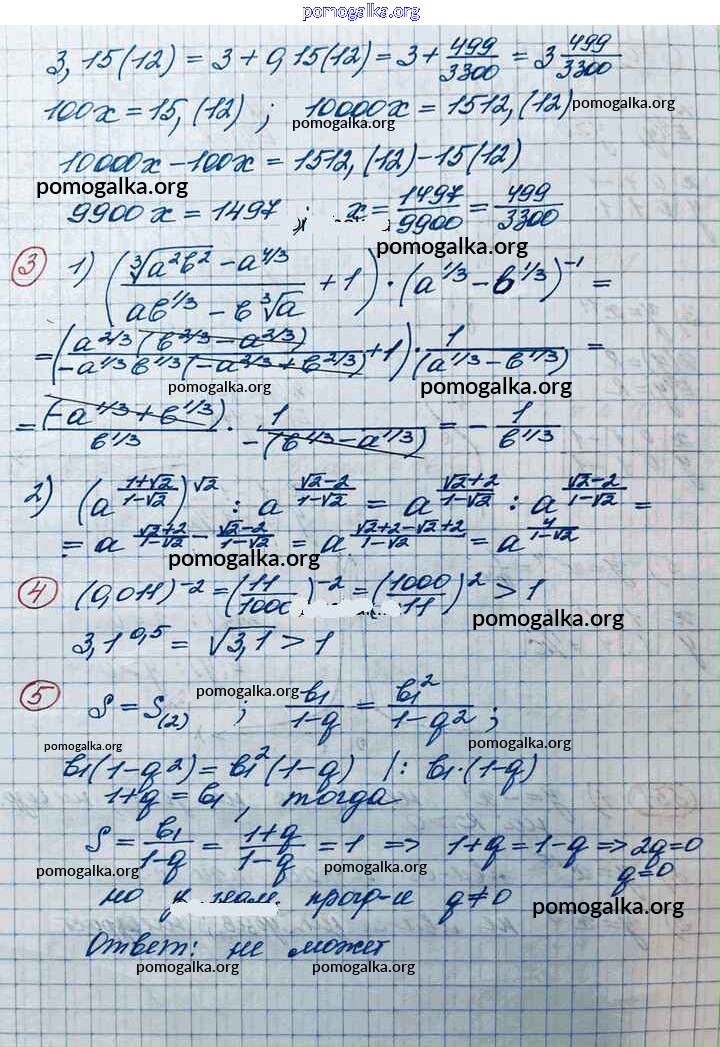 pomogalka.org
3,15(12) = 3 + 0,15(12) = 3 + 499/3300 = 3 499/3300
100x = 15,(12) ; 10000x = 1512,(12) pomogalka.org
pomogalka.org
10000x - 100x = 1512,(12) - 15(12)
pomogalka.org
9900x = 1497 ; x = 1497/9900 = 499/3300
pomogalka.org
③ 1) ((∛(a²b²) - a^(4/3)) / (ab^(1/3) - b∛a) + 1) · (a^(1/3) - b^(1/3))^(-1) =
= (a^(2/3)(b^(2/3) - a^(2/3)) / (-a^(1/3)b^(1/3)(-a^(2/3) + b^(2/3))) + 1) · 1/(a^(1/3) - b^(1/3)) =
pomogalka.org pomogalka.org
= (-a^(1/3) + b^(1/3))/b^(1/3) · 1/(-(b^(1/3) - a^(1/3))) = - 1/b^(1/3)
2) (a^((1+√2)/(1-√2)))^(√2) : a^((√2-2)/(1-√2)) = a^((√2+2)/(1-√2)) : a^((√2-2)/(1-√2)) =
= a^((√2+2)/(1-√2) - (√2-2)/(1-√2)) = a^((√2+2-√2+2)/(1-√2)) = a^(4/(1-√2))
pomogalka.org
④ (0,011)^(-2) = (11/1000)^(-2) = (1000/11)² > 1
pomogalka.org
3,1^(0,5) = √3,1 > 1
pomogalka.org
⑤ S = S(2) ; b₁/(1-q) = b₁²/(1-q²) ;
pomogalka.org pomogalka.org
b₁(1-q²) = b₁²(1-q) |: b₁·(1-q)
1+q = b₁, тогда
S = b₁/(1-q) = (1+q)/(1-q) = 1 => 1+q = 1-q => 2q=0
q=0
pomogalka.org pomogalka.org
но у геом. прогр-и q≠0
pomogalka.org
Ответ: не может
pomogalka.org pomogalka.org